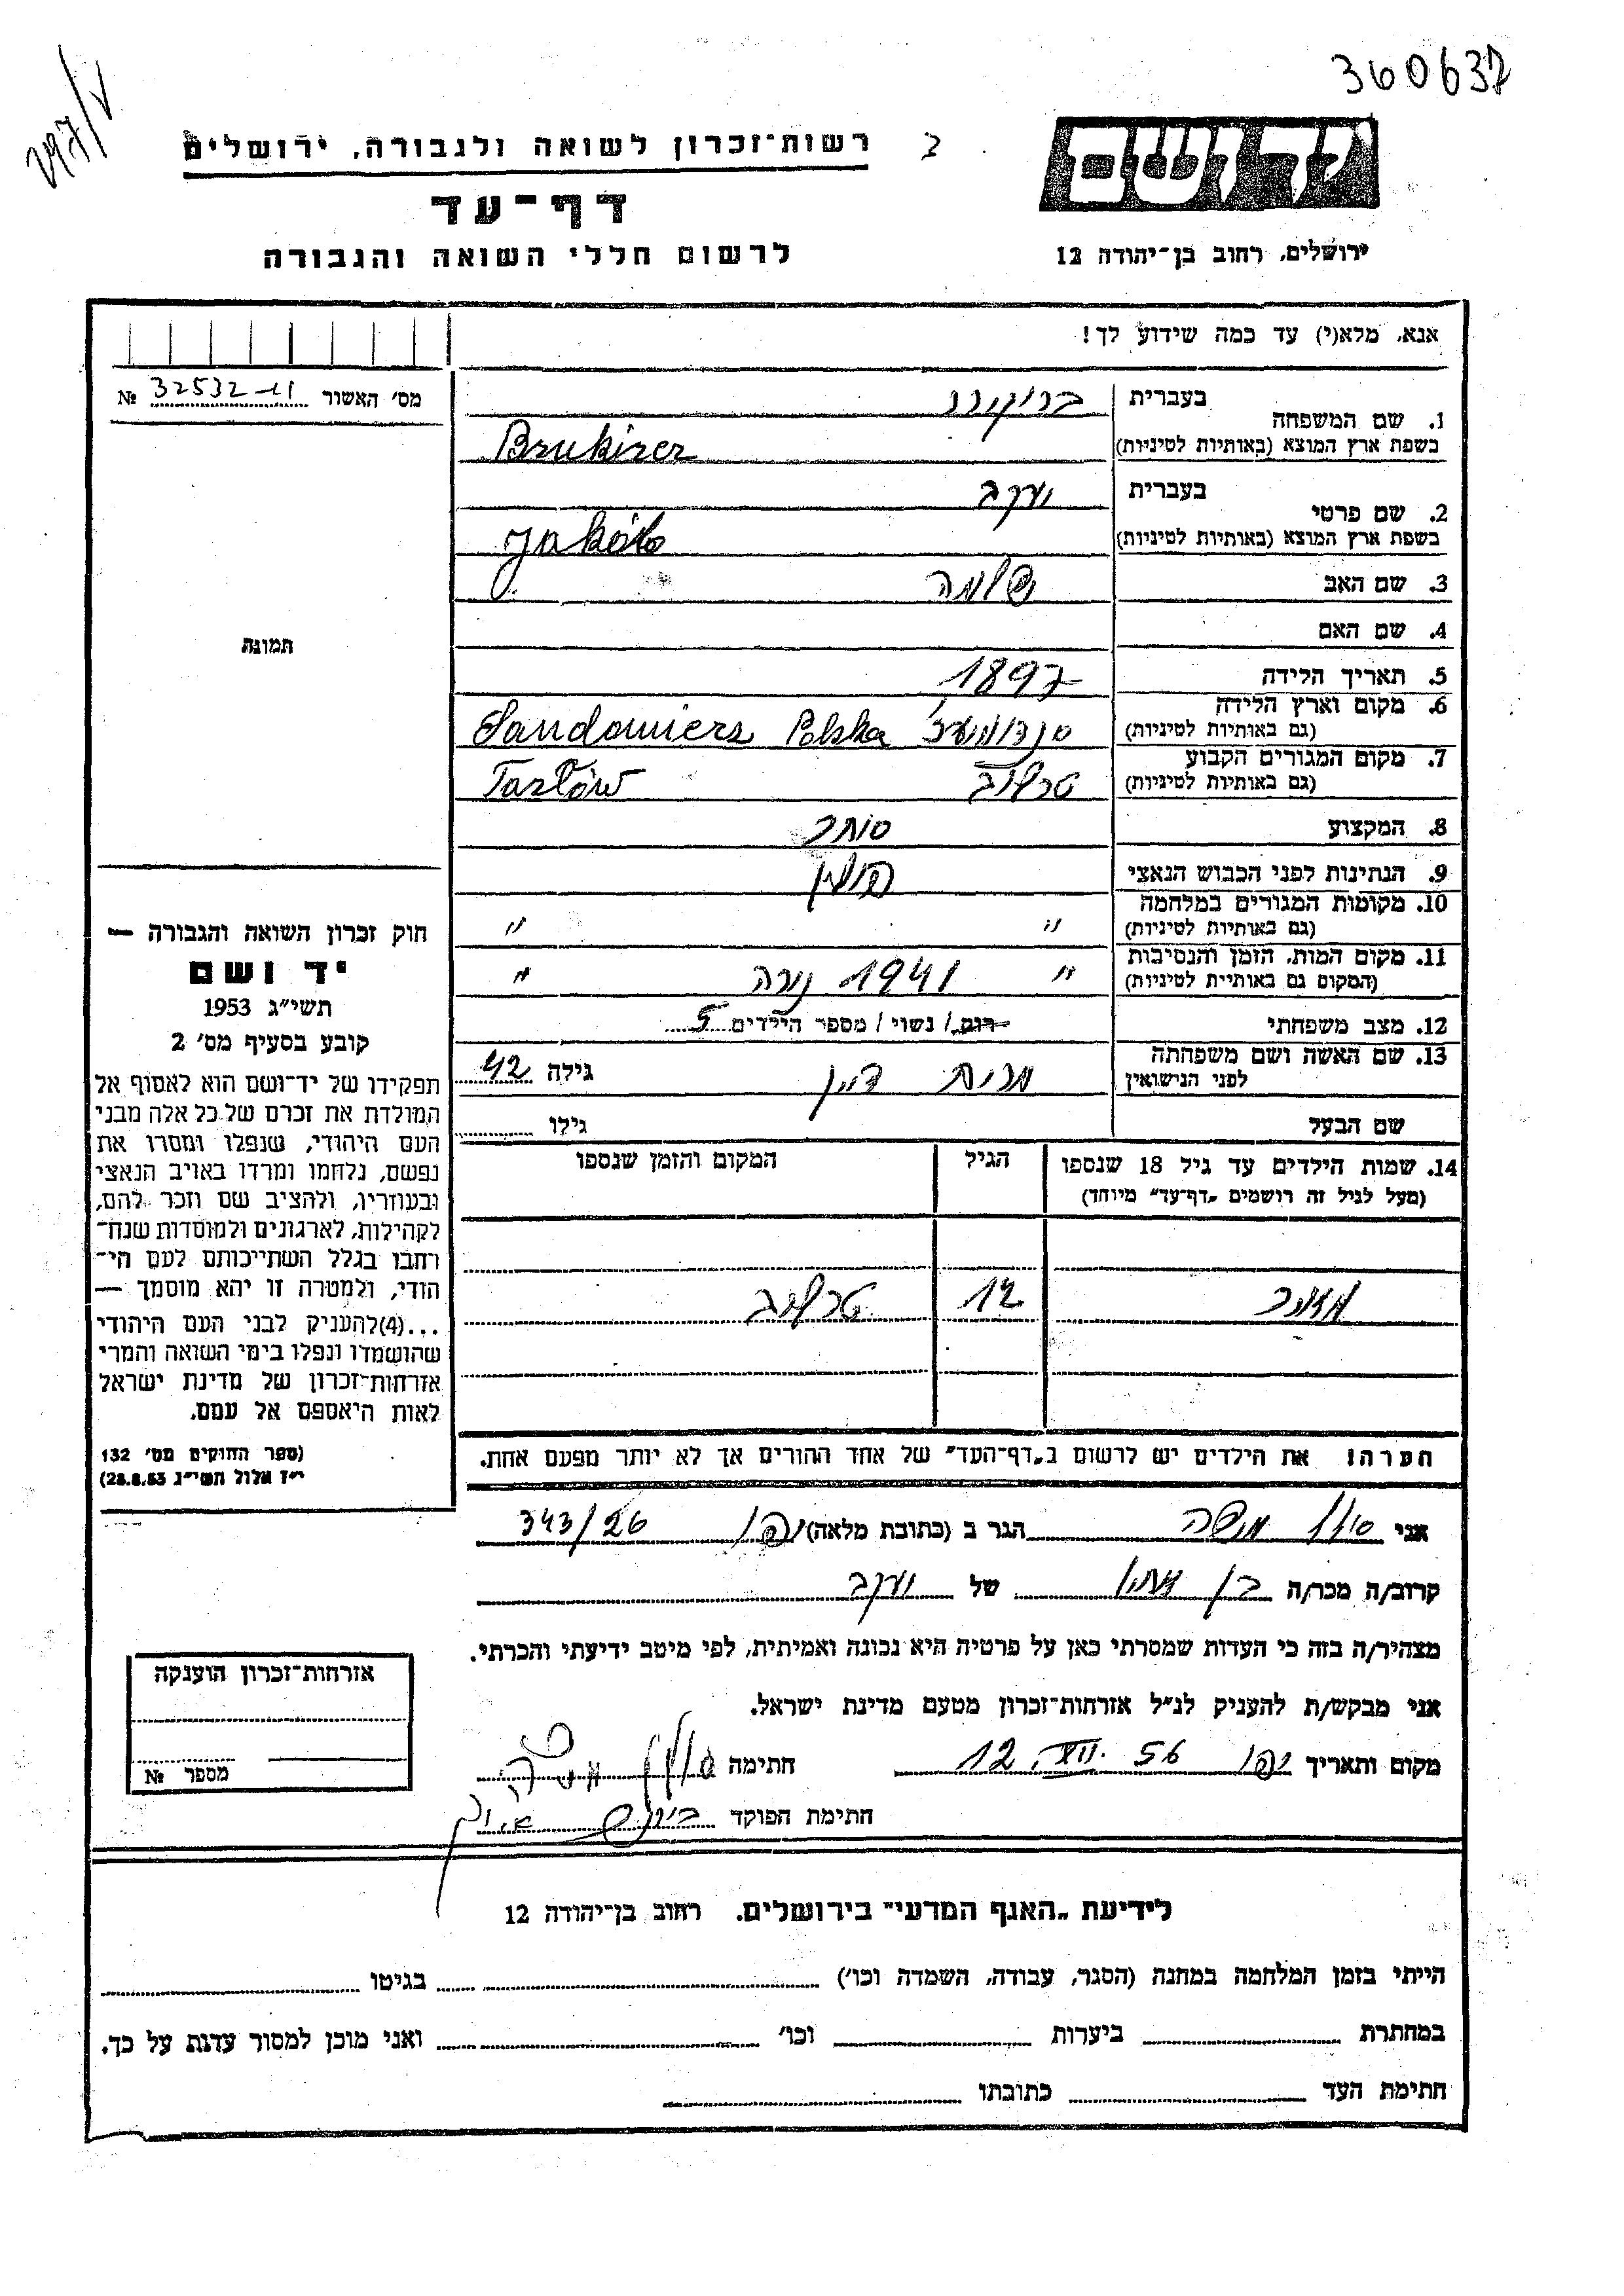 360632
197/V
רשות־זכרון לשואה ולגבורה, ירושלים
דף־עד
לרשום חללי השואה והגבורה
יד ושם
ירושלים, רחוב בן־יהודה 12
אנא, מלא(י) עד כמה שידוע לך!
מס׳ האשור 32532-11 №
1. שם המשפחה בעברית ברוקירר
בשפת ארץ המוצא (באותיות לטיניות) Brukirer
2. שם פרטי בעברית יעקב
בשפת ארץ המוצא (באותיות לטיניות) Jakób
3. שם האב שלמה
4. שם האם
5. תאריך הלידה 1897
6. מקום וארץ הלידה (גם באותיות לטיניות) Polska Sandomierz
7. מקום המגורים הקבוע (גם באותיות לטיניות) טרלוב Tarłów
8. המקצוע סוחר
9. הנתינות לפני הכבוש הנאצי פולין
10. מקומות המגורים במלחמה (גם באותיות לטיניות) " "
11. מקום המות, הזמן והנסיבות (המקום גם באותיות לטיניות) " 1941 נורה "
12. מצב משפחתי רווק/ נשוי/ מספר הילדים 5
13. שם האשה ושם משפחתה לפני הנישואין גילה 42
שם הבעל גילו
14. שמות הילדים עד גיל 18 שנספו הגיל המקום והזמן שנספו
(מעל לגיל זה רושמים „דף־עד” מיוחד)
12 טרלוב
הערה! את הילדים יש לרשום ב„דף־העד” של אחד ההורים אך לא יותר מפעם אחת.
תמונה
חוק זכרון השואה והגבורה —
יד ושם
תשי״ג 1953
קובע בסעיף מס׳ 2
תפקידו של יד־ושם הוא לאסוף אל
המולדת את זכרם של כל אלה מבני
העם היהודי, שנפלו ומסרו את
נפשם, נלחמו ומרדו באויב הנאצי
ובעוזריו, ולהציב שם וזכר להם,
לקהילות, לארגונים ולמוסדות שנח־
רבו בגלל השתייכותם לעם הי־
הודי, ולמטרה זו יהא מוסמך —
...(4)להעניק לבני העם היהודי
שהושמדו ונפלו בימי השואה והמרי
אזרחות־זכרון של מדינת ישראל
לאות היאספם אל עמם.
(ספר החוקים מס׳ 132
י״ז אלול תשי״ג 28.8.53)
אני משה הגר ב (כתובת מלאה) יפו 343/26
קרוב/ה מכר/ה בן של יעקב
מצהיר/ה בזה כי העדות שמסרתי כאן על פרטיה היא נכונה ואמיתית, לפי מיטב ידיעתי והכרתי.
אני מבקש/ת להעניק לנ״ל אזרחות־זכרון מטעם מדינת ישראל.
מקום ותאריך יפו 12 VII 56 חתימה
חתימת הפוקד
אזרחות־זכרון הוענקה
מספר №
לידיעת „האגף המדעי” בירושלים. רחוב בן־יהודה 12
הייתי בזמן המלחמה במחנה (הסגר, עבודה, השמדה וכו׳) בגיטו
במחתרת ביערות וכו׳ ואני מוכן למסור עדות על כך.
חתימת העד כתובתו